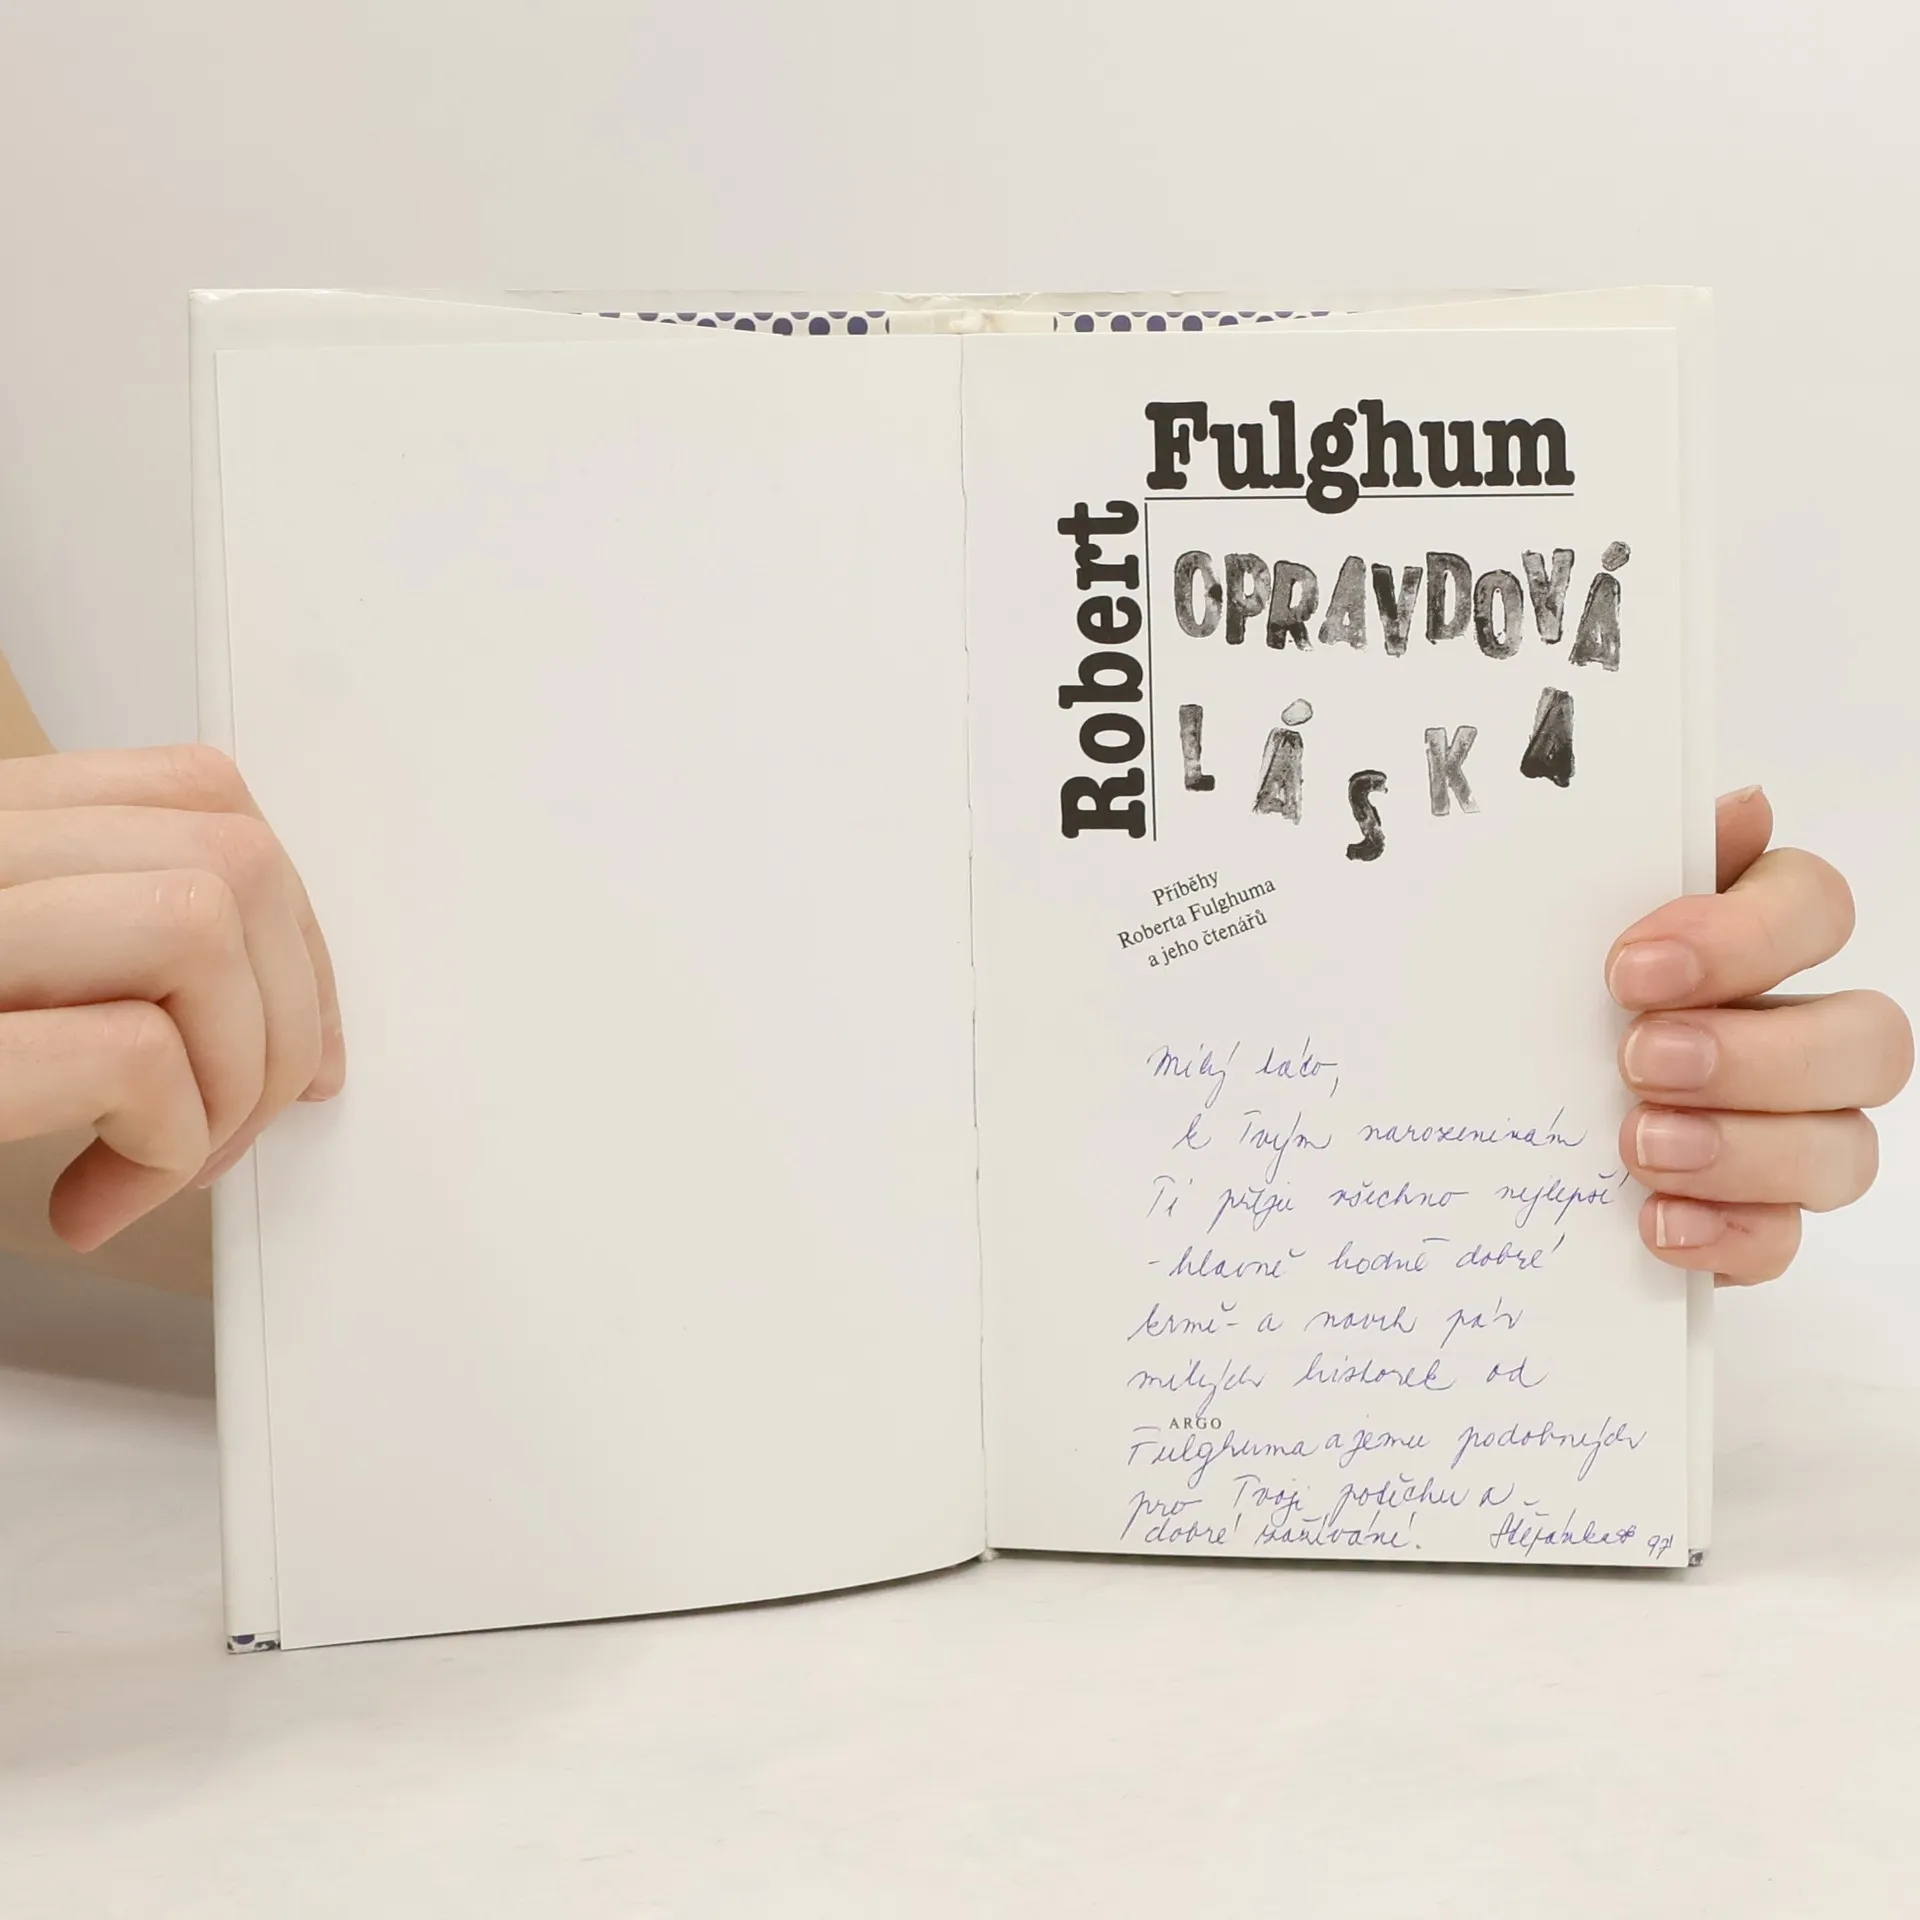 Robert
Fulghum
OPRAVDOVÁ
LÁSKA
Příběhy
Roberta Fulghuma
a jeho čtenářů
Milý táto,
k Tvým narozeninám
Ti přeju všechno nejlepší
- hlavně hodně dobré
krmě - a navrh pár
milých historek od
ARGO
Fulghuma a jemu podobných
pro Tvoji potěchu a
dobré zažívání. Štěpánka 97'